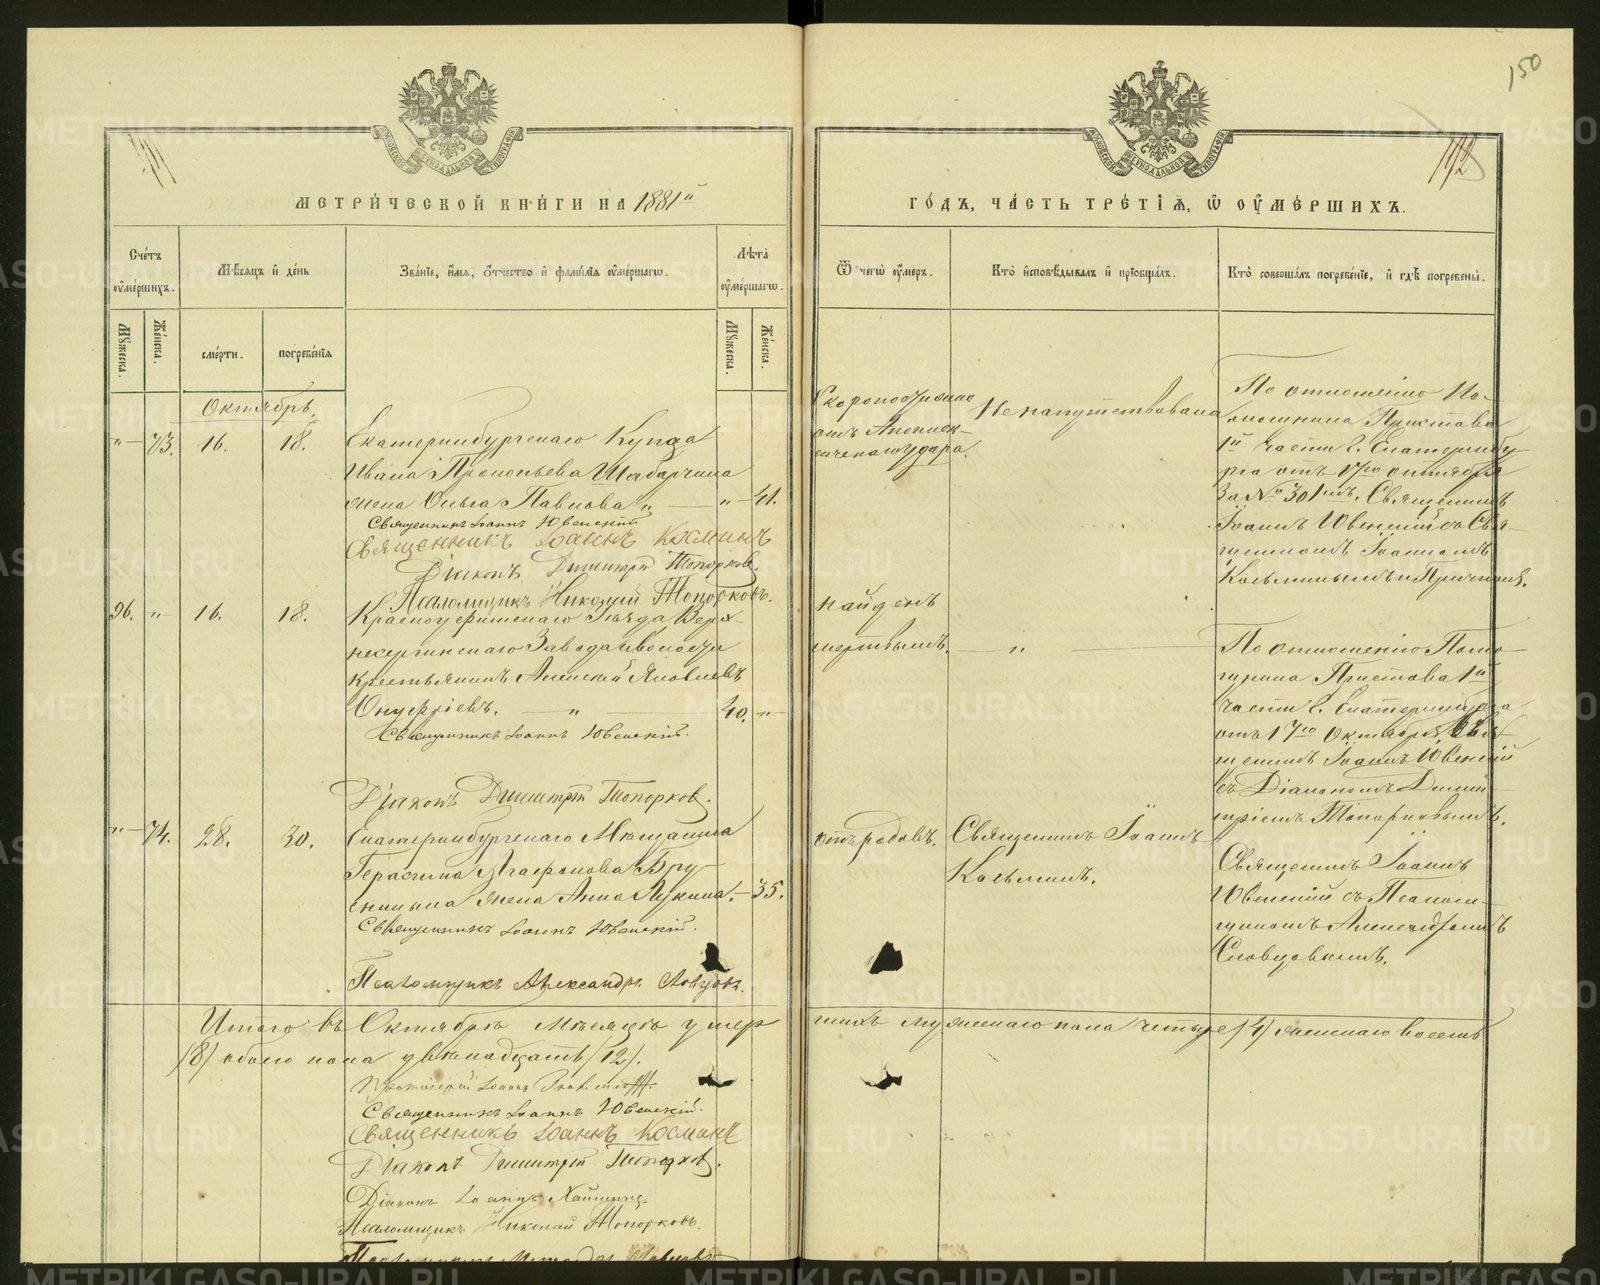 150
192
МЕТРИ́ЧЕСКОЙ КНИ́ГИ НА 1881й
ГО́ДЪ, ЧА́СТЬ ТРЕ́ТІѦ, Ѿ ОУ҆МЕ́РШИХЪ.
Сче́тъ оу҆ме́ршихъ.
Мѣ́сяцъ и҆ де́нь
Зва́нїе, и҆́мѧ, ѻ҆́тчество и҆ фами́лїѧ оу҆ме́ршагѡ.
Лѣ́та оу҆ме́ршагѡ.
Ѿ чегѡ̀ оу҆́меръ.
Кто̀ и҆сповѣ́дывалъ и҆ прїобща́лъ.
Кто̀ соверша́лъ погребе́нїе, и҆ гдѣ̀ погребены̀.
Мꙋ́жеска.
Же́нска.
сме́рти.
погребе́нїѧ
Мꙋ́жеска.
Же́нска.
Октябрь.
„ 73. 16. 18.
Екатеринбургскаго Купца
Ивана Прокопьева Шабарчина
жена Ольга Павлова „ — „ 41.
Священникъ Іоаннъ Ювенскій
Священникъ Іоаннъ Косминъ
Діаконъ Димитрій Топорковъ.
Псаломщикъ Николай Топорковъ.
Скоропостижно
отъ Апоплек-
сическаго удара.
Не напутствована
По отношенію По-
мощника Пристава
1й Части г. Екатеринбу-
рга отъ 17го октября
За № 301мъ. Священникъ
Іоаннъ Ювенскій съ Свя-
щенникомъ Іоанномъ
Козьминымъ и Причтомъ.
26. „ 16. 18.
Красноуфимскаго Уѣзда Верх-
несергинскаго Завода и волости
крестьянинъ Алексѣй Яковлевъ
Онуфріевъ. — „ 40. „
Священникъ Іоаннъ Ювенскій.
Діаконъ Димитрій Топорковъ.
найденъ
мертвымъ. — „ —
По отношенію Помо-
щника Пристава 1й
части г. Екатеринбурга
отъ 17го Октября Свя-
щенникъ Іоаннъ Ювенскій
съ Діакономъ Дими-
тріемъ Топорковымъ.
„ 74. 28. 30.
Екатеринбургскаго Мѣщанина
Герасима Агафонова Бру-
сницына жена Анна Лукина. — 35.
Священникъ Іоаннъ Ювенскій.
Псаломщикъ Александръ Словцовъ.
отъ родовъ.
Священникъ Іоаннъ
Козьминъ.
Священникъ Іоаннъ
Ювенскій съ Псалом-
щикомъ Александромъ
Словцовымъ.
Итого въ Октябрѣ мѣсяцѣ умер
шихъ мужескаго пола четыре /4/ женскаго восемь
/8/ обоего пола двѣнадцать /12/.
Протоіерей Іоаннъ
Священникъ Іоаннъ Ювенскій.
Священникъ Іоаннъ Косминъ
Діаконъ Димитрій Топорковъ.
Діаконъ Іоаннъ
Псаломщикъ Николай Топорковъ.
Псаломщикъ
METRIKI.GASO-URAL.RU